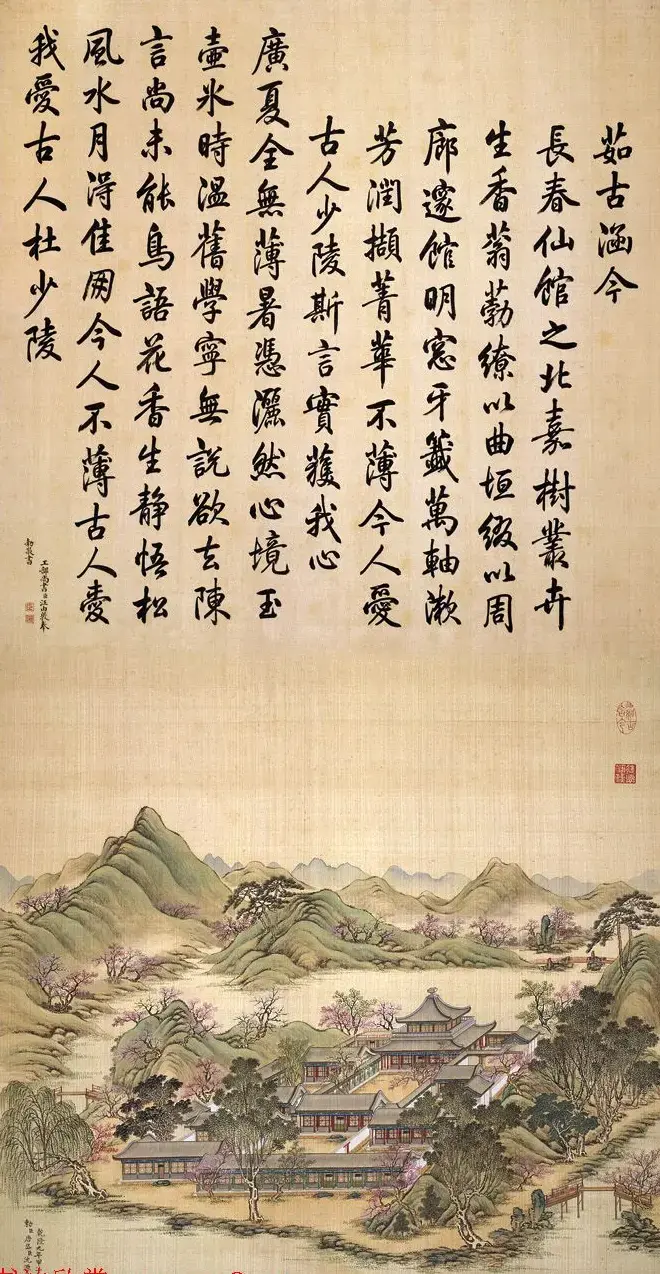 茹古涵今
長春仙館之北嘉樹叢卉
生香蓊葧繚以曲垣綴以周
廊邃館明窓牙籤萬軸漱
芳潤擷菁華不薄今人愛
古人少陵斯言實獲我心
廣夏全無薄暑憑灑然心境玉
壺氷時溫舊學寧無說欲去陳
言尚未能鳥語花香生静悟松
風水月得佳朋今人不薄古人愛
我愛古人杜少陵
工部尚書臣汪由敦奉
勅敬書
乾隆九年甲
勅臣唐岱臣沈源